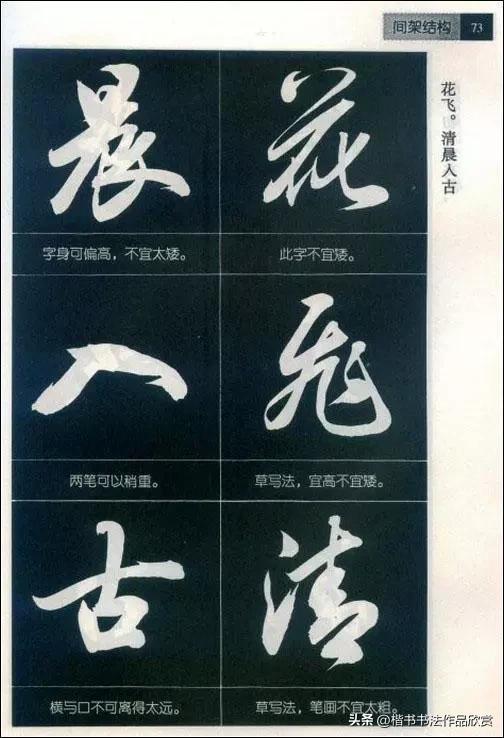 间架结构 73
花飞。清晨入古
花
此字不宜矮。
飞
草写法，宜高不宜矮。
清
草写法，笔画不宜太粗。
晨
字身可偏高，不宜太矮。
入
两笔可以稍重。
古
横与口不可离得太远。
头条 @楷书书法作品欣赏